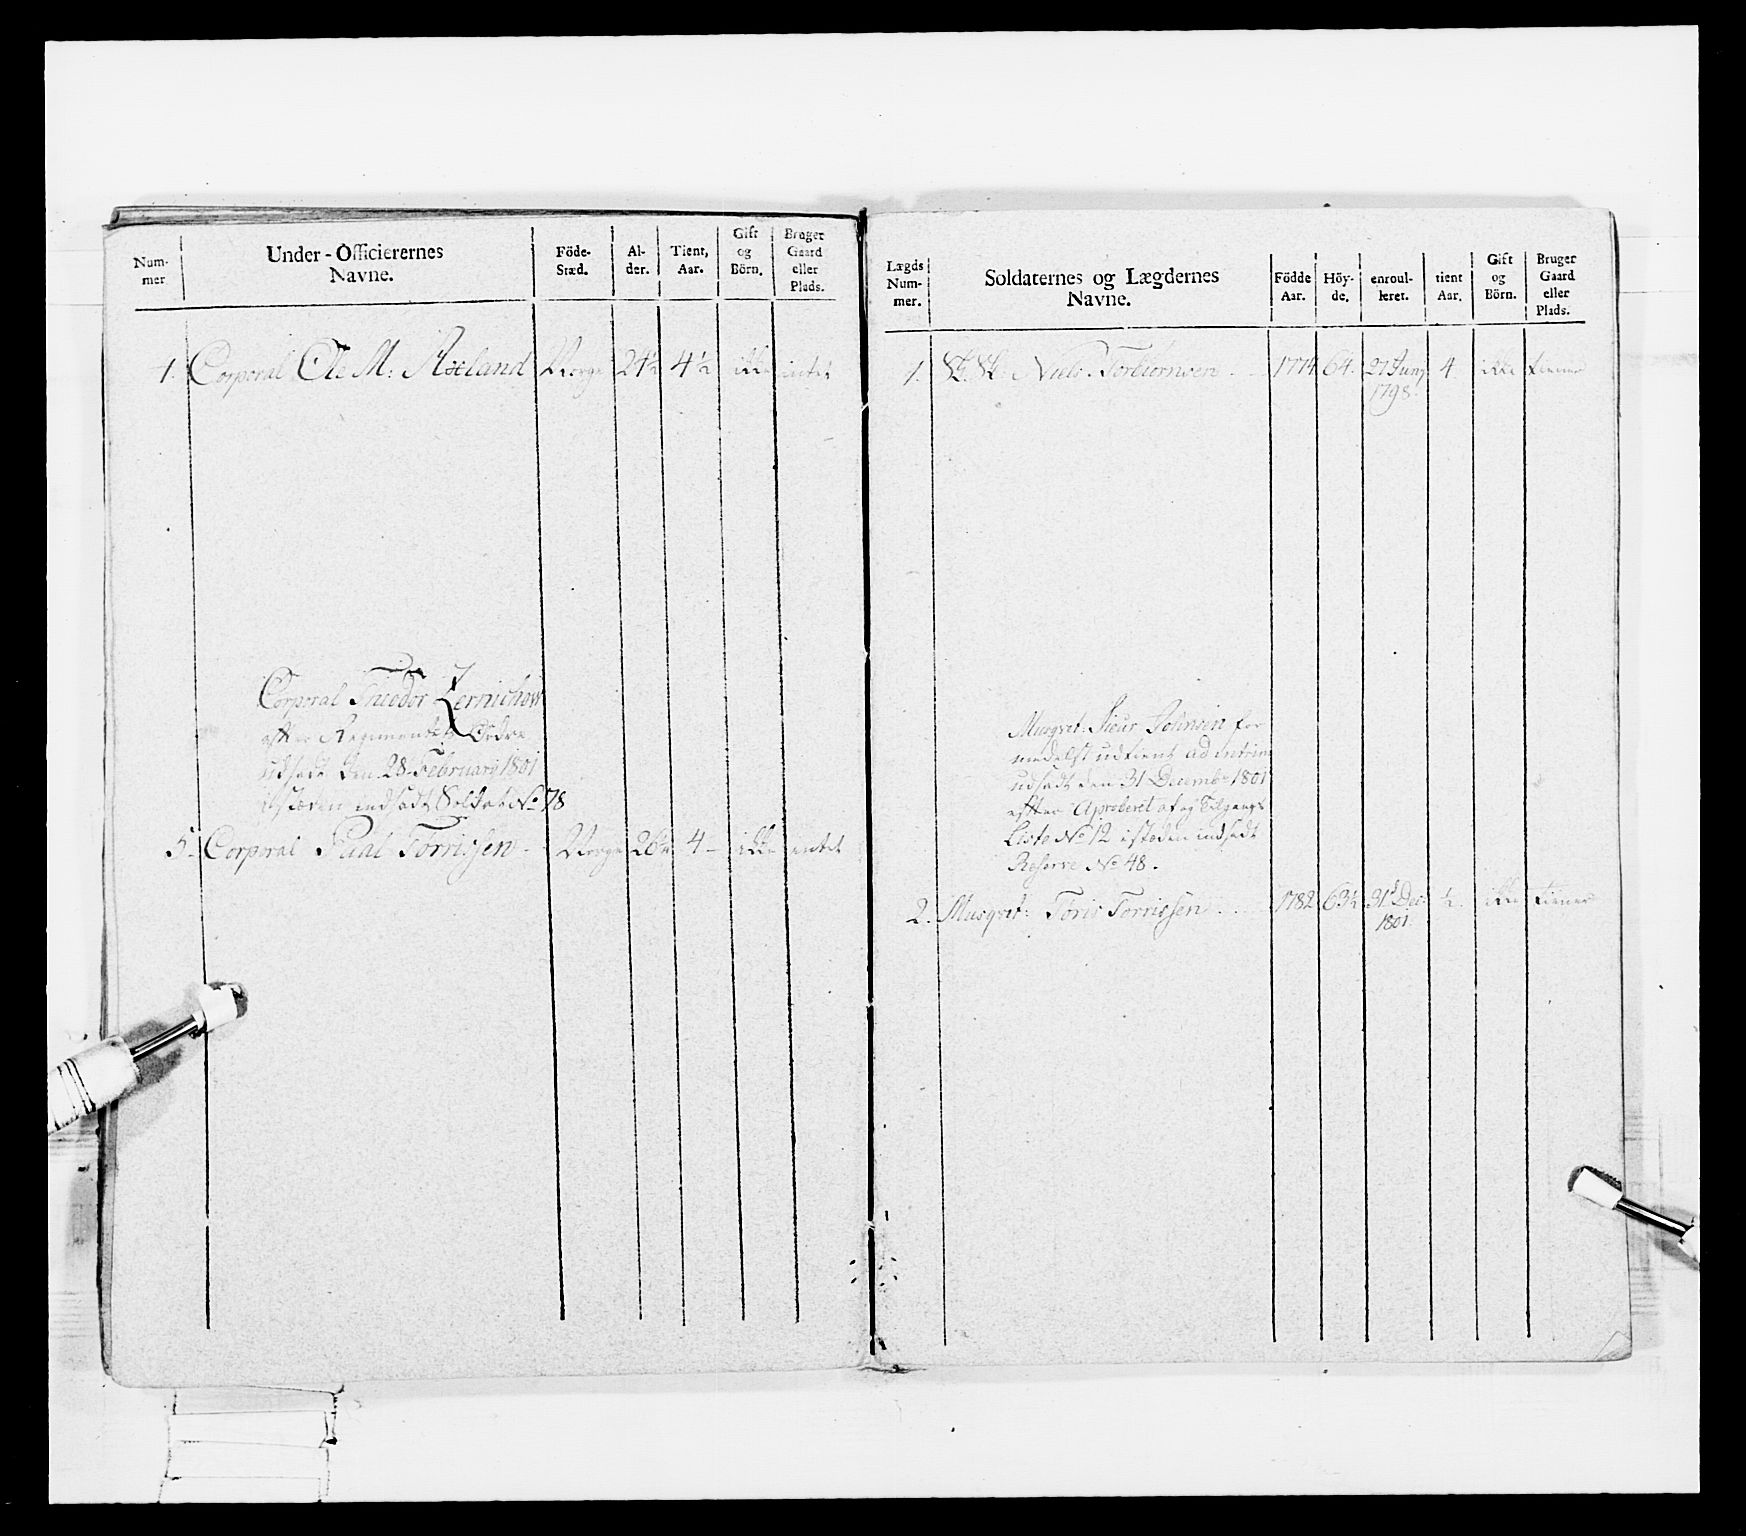 Num-
mer
Under-Officierernes
Navne.
Föde-
Stæd.
Al-
der.
Tient,
Aar.
Gift
og
Börn.
Bruger
Gaard
eller
Plads.
1. Corporal Ole M: Axeland Norge 24½ 4½ ikke intet
Corporal Theodor Zernichow
efter Regimentets Ordre
udsadt den 28 Februarij 1801
istæden indsadt Soldat No 78
5. Corporal Paal Torrissen - Norge 26½ 4 - ikke intet
Lægds
Num-
mer.
Soldaternes og Lægdernes
Navne.
Födde
Aar.
Höy-
de.
enroul-
leret.
tient
Aar.
Gift
og
Börn.
Bruger
Gaard
eller
Plads.
1. Niels Torbiörnsen 1774 64. 27 Junj 4 ikke tiener
1798.
Musqvet: Siur Johnsen for
medelst udtient ad intrim
udsadt den 31 Decembr 1801
efter Aproberet af og Tilgangs
Liste No 12 isteden indsadt
Reserve No 48.
2. Musqvet: Toris Torrissen 1782 63½ 31 Dec: ½ ikke tiener
1801.